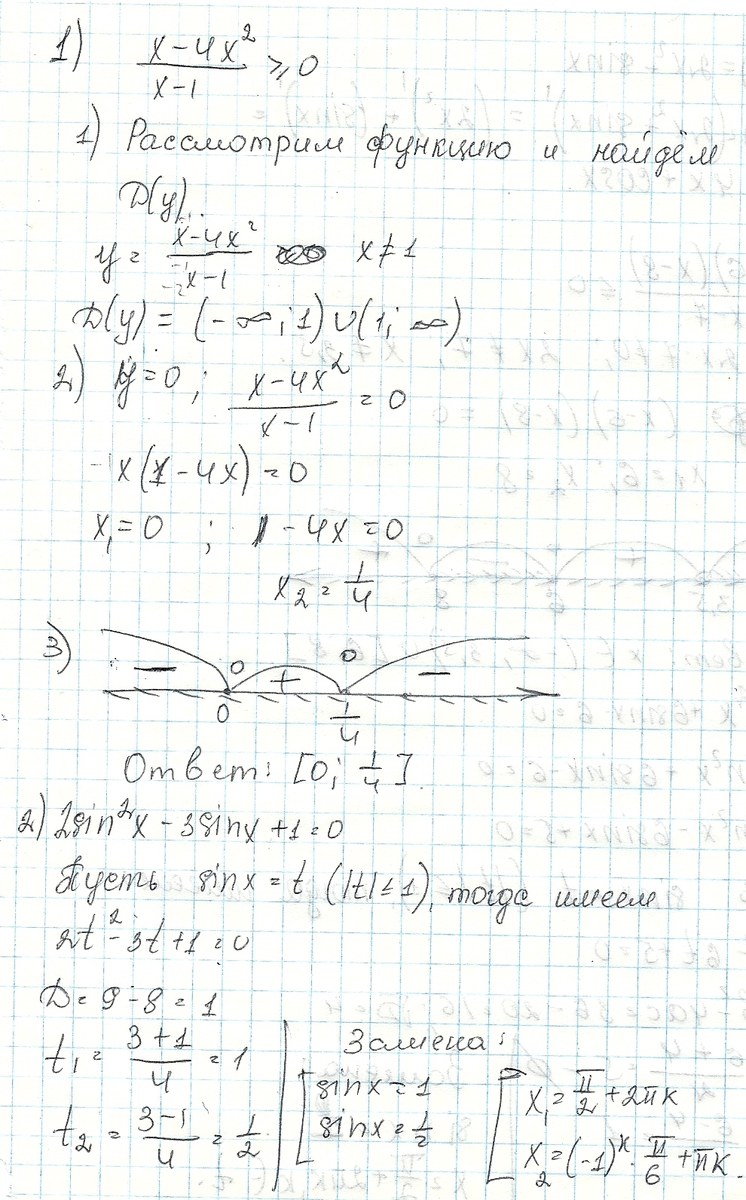 1) (x-4x²)/(x-1) ⩾ 0
1) Рассмотрим функцию и найдём
D(y).
y = (x-4x²)/(x-1) x≠1
D(y) = (-∞; 1)∪(1; ∞)
2) y=0; (x-4x²)/(x-1) = 0
x(1-4x)=0
x₁=0 ; 1-4x=0
x₂=1/4
3) - 0 + 0 -
0 1/4
Ответ: [0; 1/4].
2) 2sin²x - 3sinx + 1 = 0
Пусть sinx = t (|t|≤1), тогда имеем
2t² - 3t + 1 = 0
D = 9 - 8 = 1
t₁ = (3+1)/4 = 1
t₂ = (3-1)/4 = 1/2
Замена:
[ sinx = 1
sinx = 1/2
[ x₁ = π/2 + 2πk
x₂ = (-1)ᵏ · π/6 + πk.